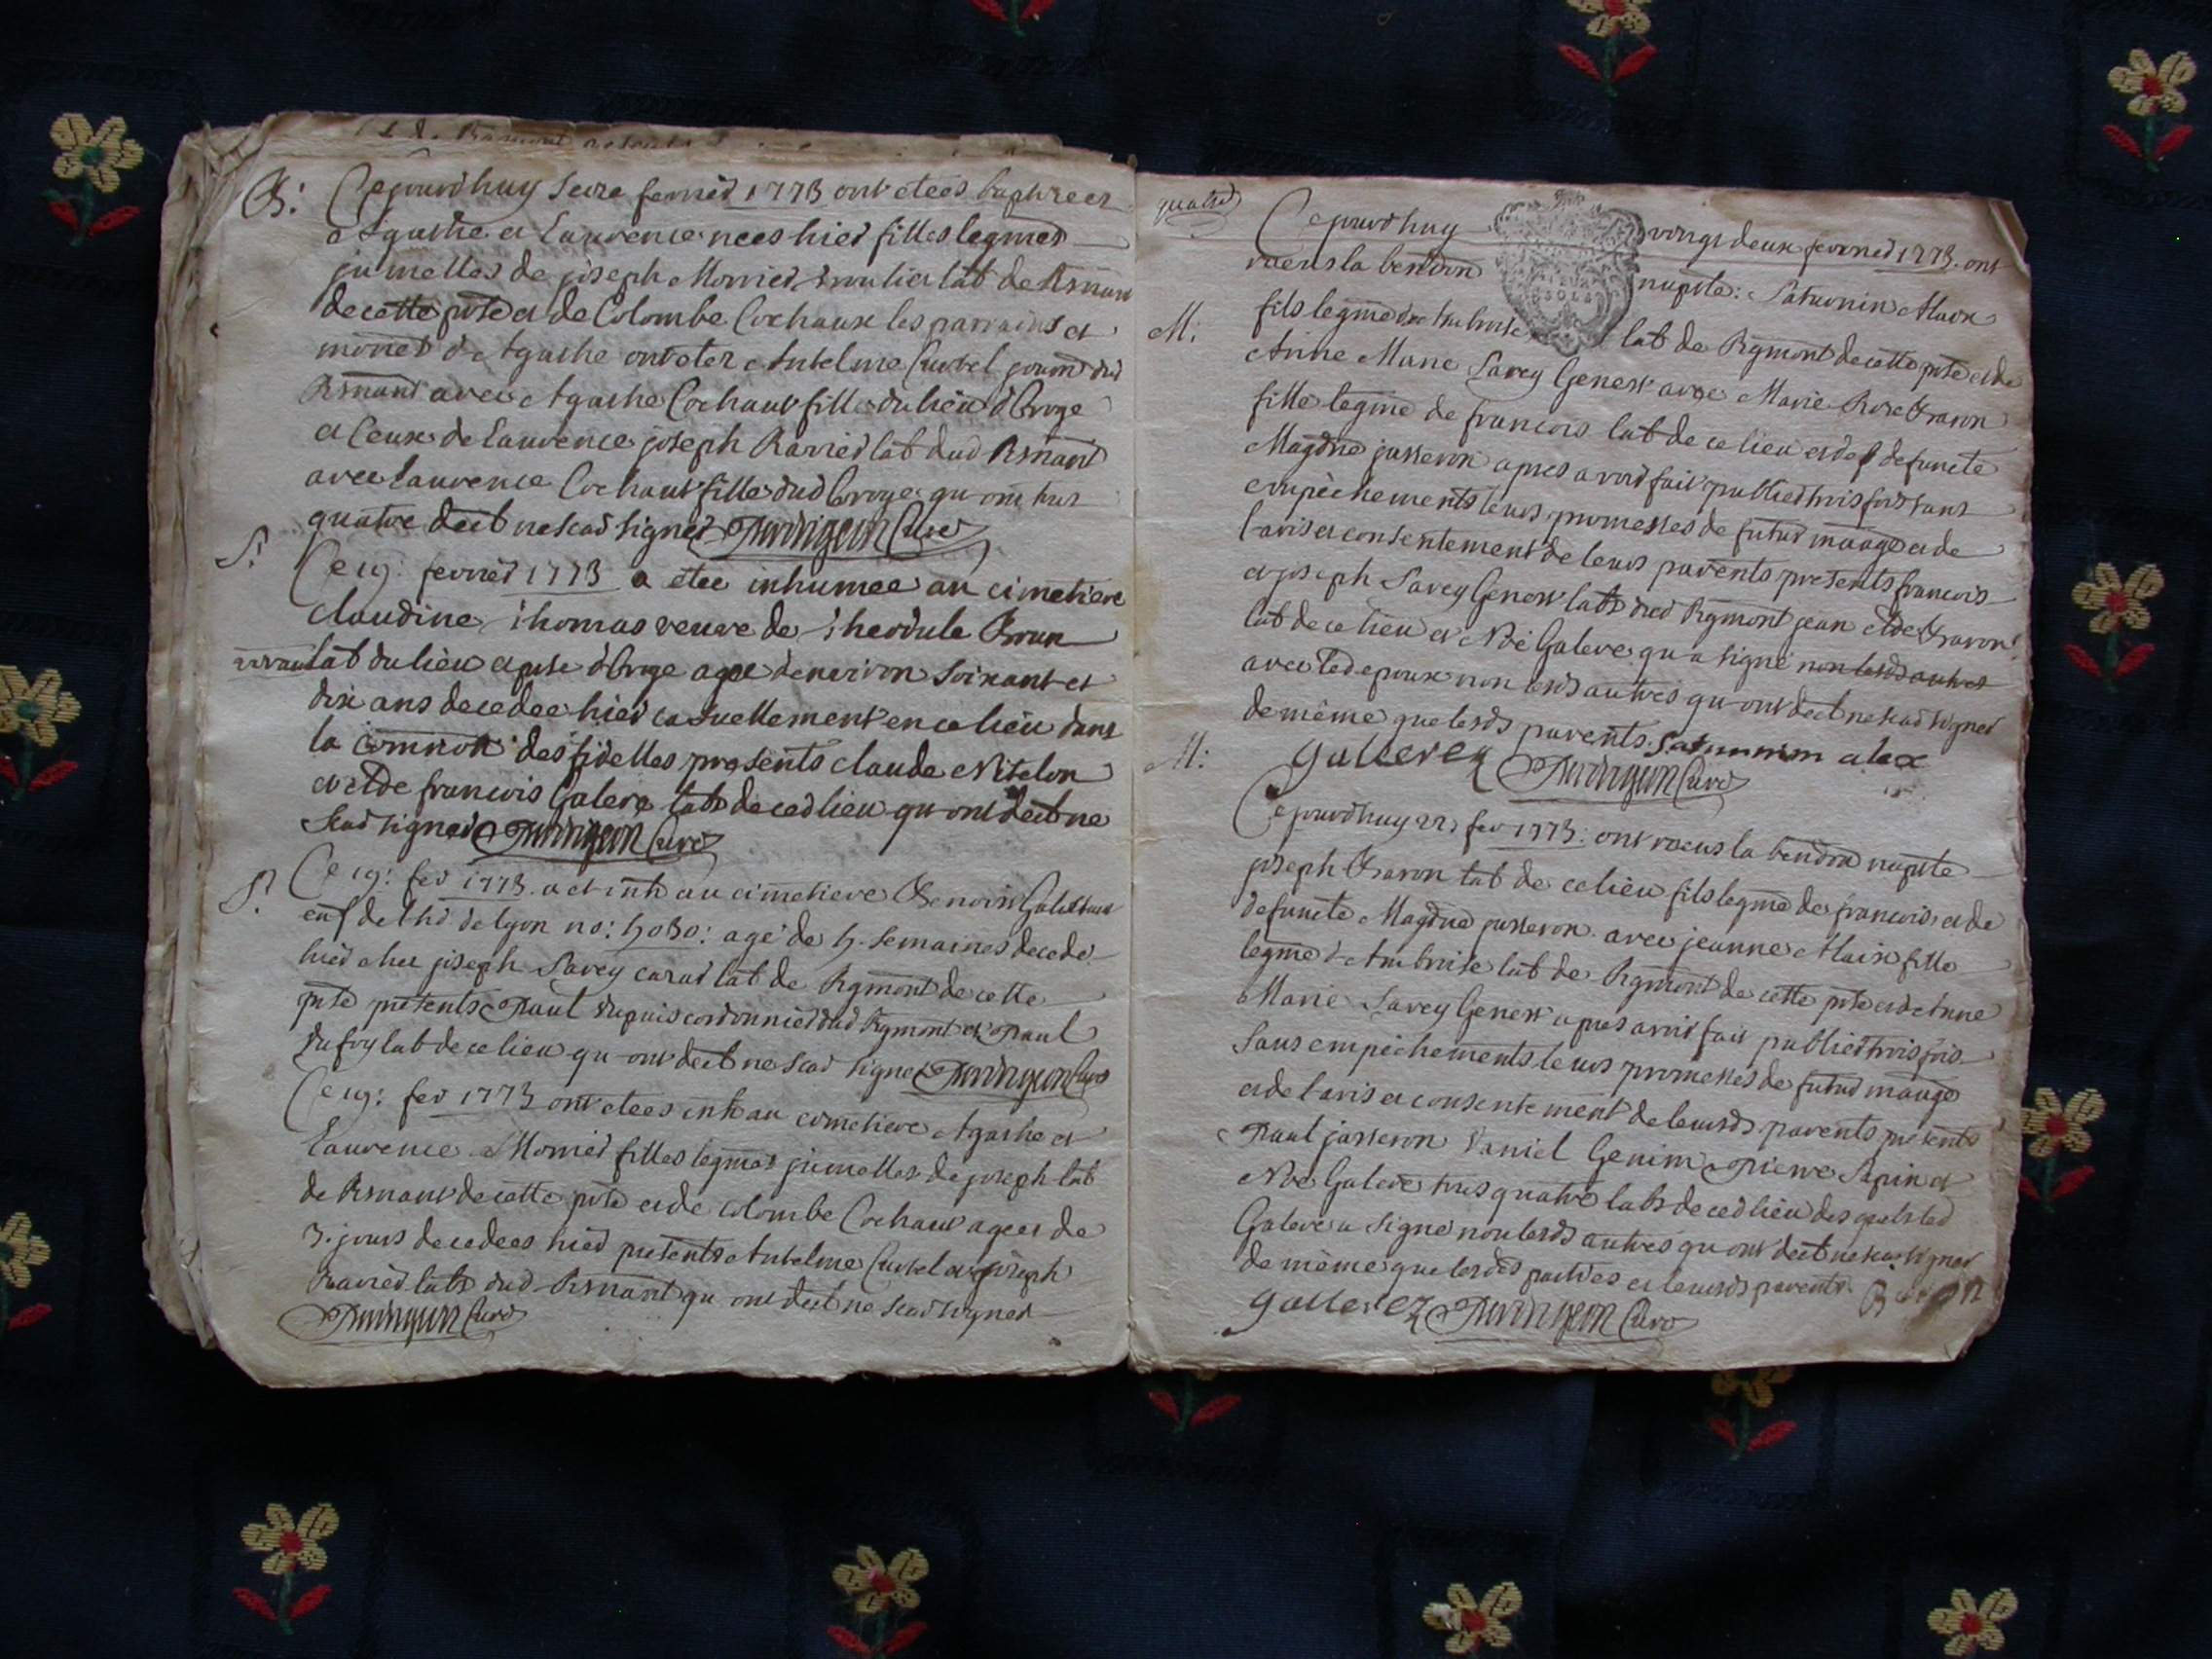 B:
Cejourdhuy seize fevrier 1773 ont etees baptizees
Agathe et Laurence nees hier filles legmes
jumelles de joseph Monier lab de
de cette psse et de Colombe Cochaux les parrains et
d'Agathe ont eter Antelme Curbel dud
avec Agathe Cochaux fille du lieu d'Broge
et Ceux de Laurence joseph Ravier lab dud
avec Laurence Cochaux fille dud broge qu ont tus
quatre dect ne scad signer Curé
S:
Ce 19: fevrier 1773 a etee inhumee au cimetiere
Claudine Thomas veuve de Theodule Brun
lab du lieu et psse d'broge agee denviron soixante et
dix ans decedee hier casuellement en ce lieu dans
la common des fidelles presents claude Vitelon
et de francois Galere labs de ced lieu qu ont dect ne
scad signer Curé
S:
Ce 19: fev 1773. a et inh au cimetiere Benoit
enf de lhd de lyon no: 5030: agé de 5. semaines decede
hier chez joseph Savey carad lab de Rgmont de cette
psse presents Paul dupuis cordonnier dud Rgmont et Paul
dufoy lab de ce lieu qu ont dect ne scad signer Curé
Ce 19: fev 1773 ont etees inh au cimetiere Agathe et
Laurence Monier filles legmes jumelles de joseph lab
de de cette psse et de Colombe Cochaux agees de
3. jours decedees hier presents Antelme Curbel et joseph
Ravier labs dud qu ont dect ne scad signer
Curé
quatre
Cejourdhuy vingt deux fevrier 1773. ont
receus la bendon nuptle: Saturnin Alaix
M:
fils legme d'Ambroise lab de Rgmont de cette psse et de
Anne Marie Savey Genest avec Marie Rose Baron
fille legme de francois lab de ce lieu et de defuncte
Magdne jasseron apres avoir fait publier trois fois sans
empechements leurs promesses de futur mariage et de
l'avis et consentement de leurs parents presents francois
et joseph Savey Genest labs dud Rgmont jean Baron
lab de ce lieu et Noé Galere qu a signé non lesds autres
avec led epoux non lesds autres qu ont dect ne scad signer
de même que lesds parents. Saturnin alex
M:
gallerez Curé
Cejourdhuy 22 fev 1773: ont receus la bendon nuptle
joseph Baron lab de ce lieu fils legme de francois et de
defuncte Magdne jasseron avec jeanne Alaix fille
legme d'Ambroise lab de Rgmont de cette psse et de Anne
Marie Savey Genest apres avoir fait publier trois fois
sans empechements leurs promesses de futur mariage
et de l'avis et consentement de leursds parents presents
Paul jasseron Daniel Genin Pierre Sapin et
Noe Galere tous quatre labs de ced lieu desquels led
Galere a signé non lesds autres qu ont dect ne scad signer
de même que lesdes parties et leursds parents
gallerez Curé